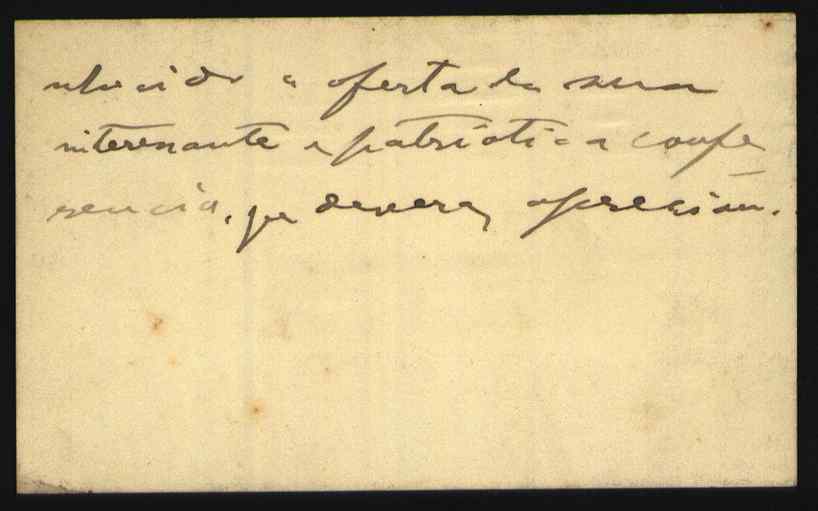 a oferta da sua
interesante e patriotica confe-
rencia, que devéras apreciou.